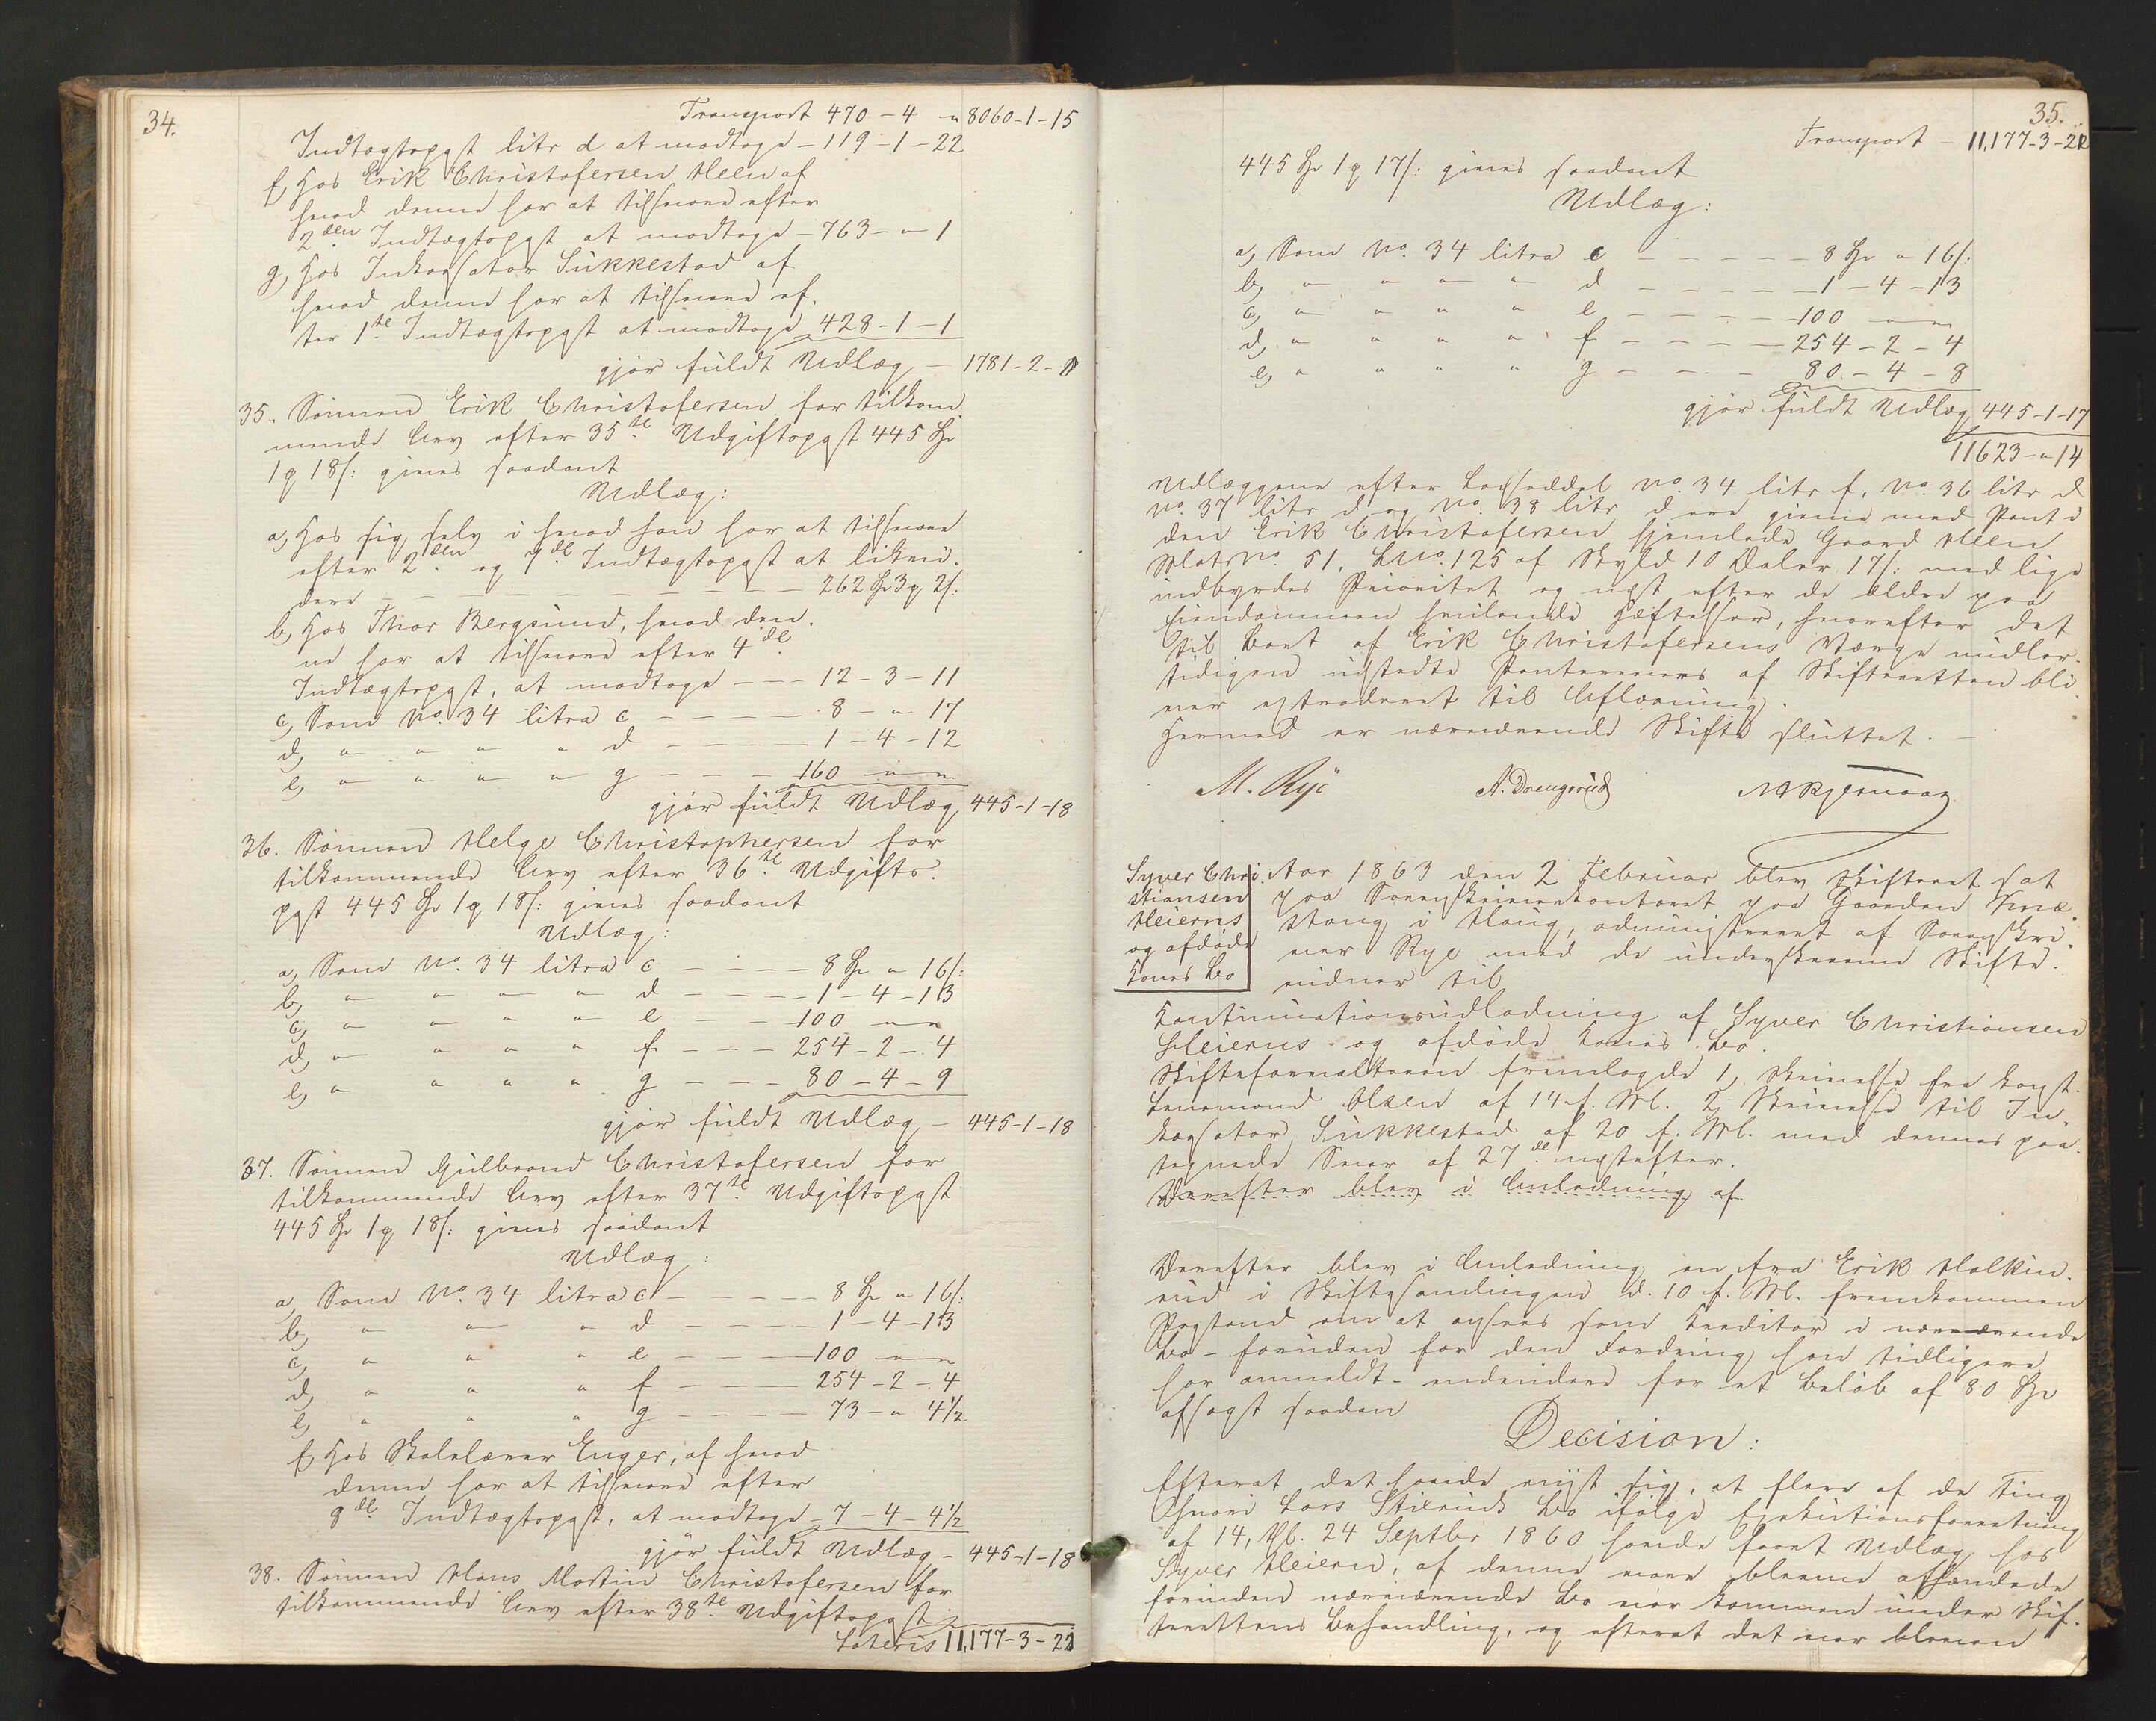 34.
Transport 470 - 4 - " 8060-1-15
Indtægtspgst litr d at modtage - 119 - 1 - 22
f, Hos Erik Christofersen Heen af
hvad denne har at tilsvare efter
2den Indtægtspgst at modtage - 763 - " - 1
g, Hos Inkassator Sukkestad af
hvad denne har at tilsvare ef-
ter 1te Indtægtspgst at modtage 428 - 1 - 1
gjør fuldt Udlæg - 1781 - 2 - 1
35. Sønnen Erik Christofersen for tilkom-
mende Arv efter 35te Udgiftspgst 445 Spd
1 ₰ 18 s: gives saadant
Udlæg:
a, Hos sig selv i hvad han har at tilsvare
efter 2den og 7de Indtægtspgst at likvi-
dere - - - - - - - - 262 Spd 3 ₰ 2 s:
b, Hos Thor Bergsund, hvad den-
ne har at tilsvare efter 4de
Indtægtspgst, at modtage - - - 12 - 3 - 11
c, Som No. 34 litra c - - - - - 8 - " 17
d, " " " " d - - - - - 1 - 4 - 12
e, " " " " g - - - 160 - " "
gjør fuldt Udlæg, 445-1-18
36. Sønnen Helge Christophersen for
tilkommende Arv efter 36te Udgifts-
pgst 445 Spd 1 ₰ 18 s: gives saadant
Udlæg:
a, Som No. 34 litra c - - - - 8 Spd " 16 s:
b, " " " " d - - - - 1 - 4 - 13
c, " " " " e - - - 100 - " "
d, " " " " f - - - 254 - 2 - 4
e, " " " " g - - - 80 - 4 - 9
gjør fuldt Udlæg - 445-1-18
37. Sønnen Gulbrand Christofersen for
tilkommende Arv efter 37te Udgiftspgst
445 Spd 1 ₰ 18 s: gives saadant
Udlæg:
a, Som No. 34 litra c - - - - - 8 Spd " 16 s:
b, " " " d - - - - 1 - 4 - 13
c, " " " e - - - - 100 - " "
d, " " " f - - - - 254 - 2 - 4
e, " " " g - - - - 73 - " 4½
f, Hos Skolelærer Enger, af hvad
denne har at tilsvare efter
8de Indtægtspgst, at modtage - 7 - 4 - 4½
gjør fuldt Udlæg - 445-1-18
38. Sønnen Hans Martin Christofersen for
tilkommende Arv efter 38te Udgiftspgst
Lateris 11,177-3-22
35.
Transport - 11,177-3-22
445 Spd 1 ₰ 17 s: gives saadant
Udlæg:
a, Som No. 34 litra c - - - - - 8 Spd " 16 s:
b, " " " " d - - - - - 1 - 4 - 13
c, " " " " e - - - - 100 - " "
d, " " " " f - - - - 254 - 2 - 4
e, " " " " g - - - 80 - 4 - 8
gjør fuldt Udlæg 445-1-17
11623 - " 14
Udlæggene efter Lodseddel No. 34 litr f, No. 36 litr d
No. 37 litr d og No. 38 litr d ere givne med Pant i
den Erik Christofersen hjemlede Gaard Heen
Matr No. 51, LNo. 125 af Skyld 10 Daler 17 s: med lige
indbyrdes Prioritet og næst efter de ældre paa
Eiendommen hvilende Hæftelser, hvorefter det
til Boet af Erik Christofersens Værge midler-
tidigen udstedte Panterevers af Skifteretten bli-
ver extraderet til Aflæsning.
Hermed er nærværende Skifte sluttet. -
M. Rye A. Drengsrud M Kjernaas
Syver Chri-
stiansen
Heierns
og afdøde
Kones Bo
Aar 1863 den 2 Februar blev Skifteret sat
paa Sorenskriverkontoret paa Gaarden Kræ-
stang i Haug, administreret af Sorenskri-
ver Rye med de underskrevne Skifte-
vidner til
Kontinuationsudlodning af Syver Christiansen
Heierns og afdøde Kones Bo.
Skifteforvalteren fremlagde 1, Skrivelse fra konst.
Lensmand Olsen af 14 f. M. 2, Skrivelse til In-
kassator Sukkestad af 20 f. M. med dennes paa-
tegnede Svar af 27de næstefter.
Derefter blev i Anledning af
Derefter blev i Anledning en fra Erik Halkin-
rud i Skiftesamlingen d. 10 f. M. fremkommen
Paastand om at ansees som Kreditor i nærværende
Bo - foruden for den Fordring, han tidligere
har anmeldt - endvidere for et Beløb af 80 Spd
afsagt saadan
Decision:
Efterat det havde viist sig, at flere af de Ting
hvori Lars Stixruds Bo ifølge Exekutionsforretning
af 14, Xb. 24 Septbr 1860 havde faaet Udlæg hos
Syver Heiern, af denne vare blevne afhændede
forinden nærværende Bo var kommen under Skif-
terettens Behandling, og efterat det var bleven